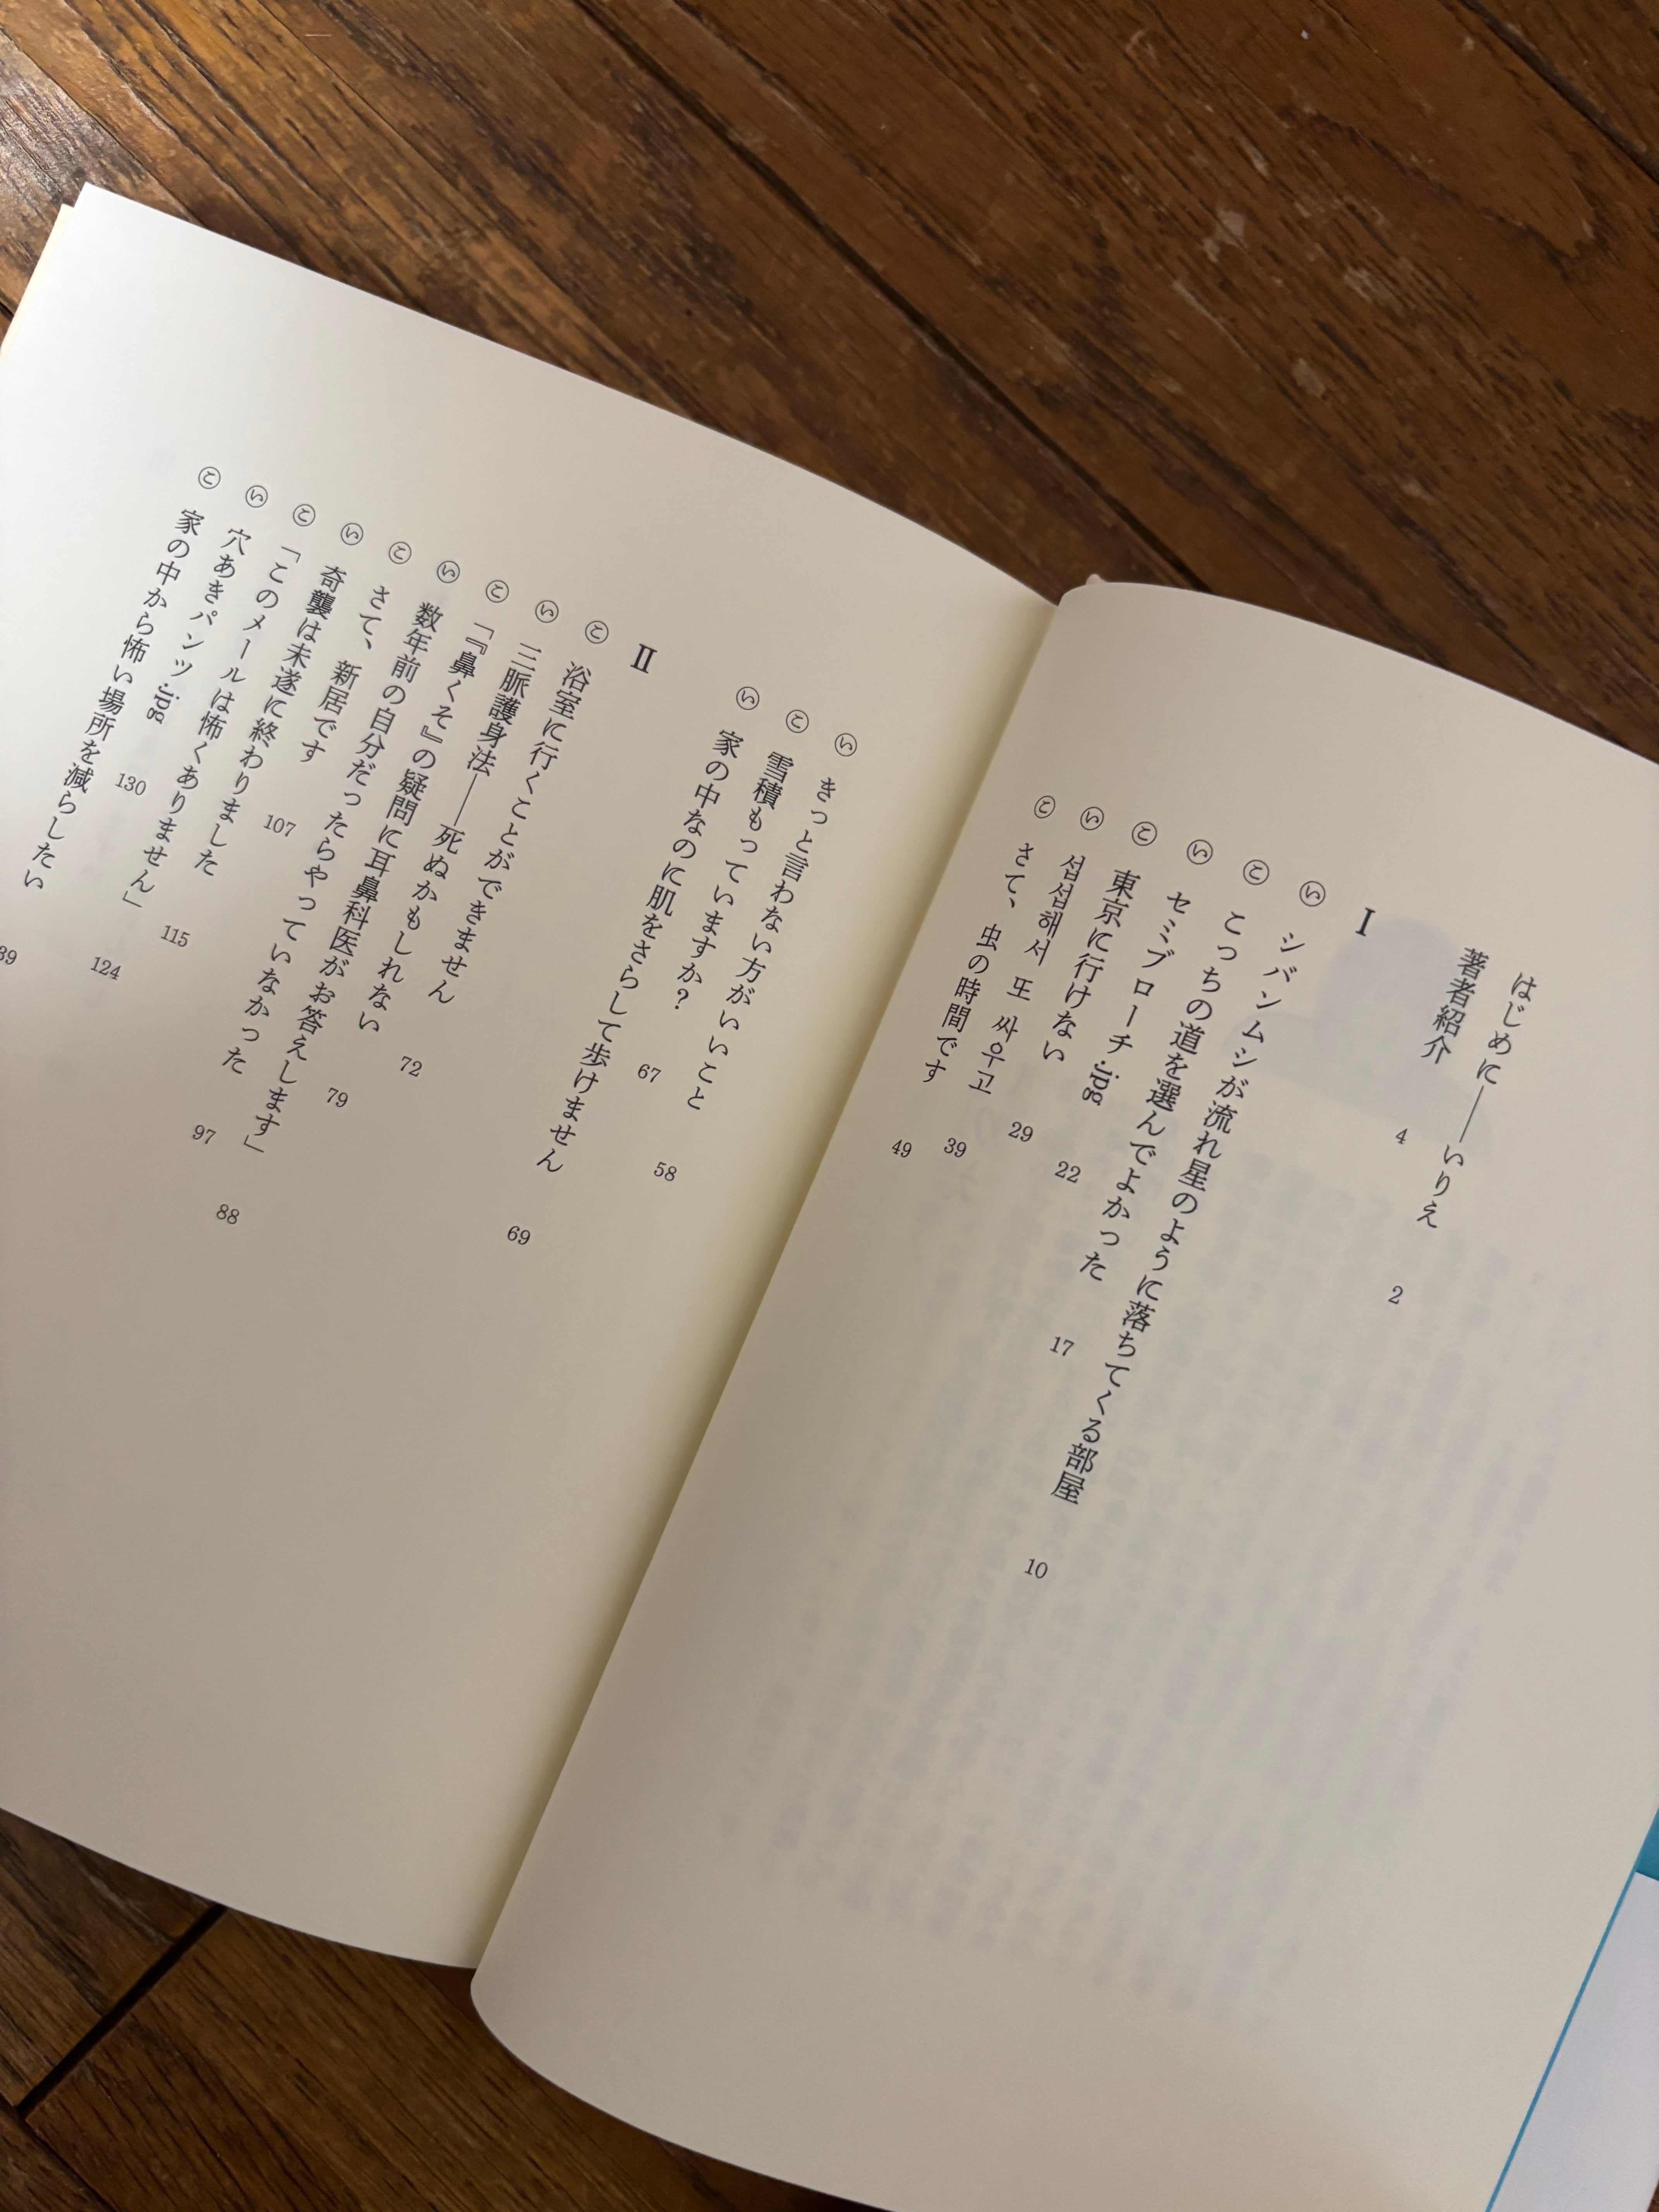 はじめに――いりえ 2
著者紹介 4
Ⅰ
い シバンムシが流れ星のように落ちてくる部屋 10
こ こっちの道を選んでよかった 17
い セミブローチ.jpg 22
こ 東京に行けない 29
い 섭섭해서 또 싸우고 39
こ さて、虫の時間です 49
い きっと言わない方がいいこと 58
こ 雪積もっていますか? 67
い 家の中なのに肌をさらして歩けません 69
Ⅱ
こ 浴室に行くことができません 72
い 三脈護身法――死ぬかもしれない 79
こ 「『鼻くそ』の疑問に耳鼻科医がお答えします」 88
い 数年前の自分だったらやっていなかった 97
こ さて、新居です 107
い 奇襲は未遂に終わりました 115
こ 「このメールは怖くありません」 124
い 穴あきパンツ.jpg 130
こ 家の中から怖い場所を減らしたい 39